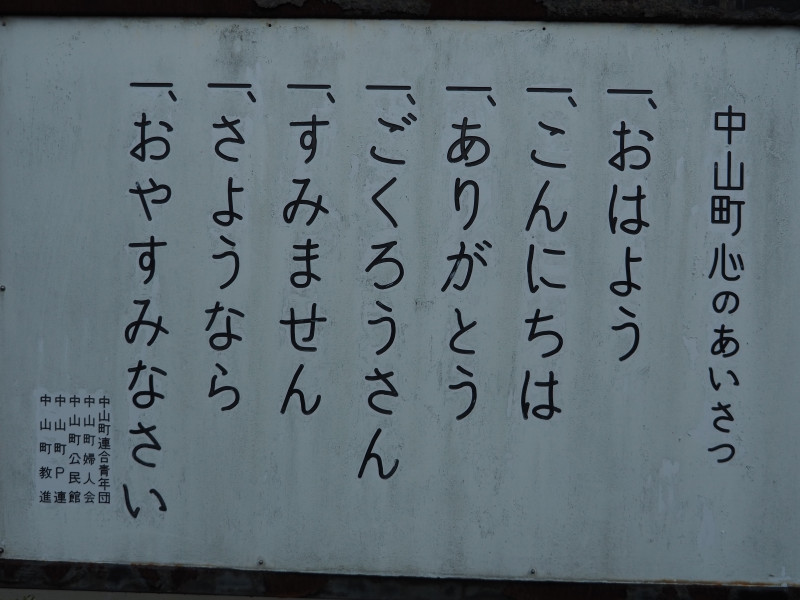 中山町心のあいさつ
一、おはよう
一、こんにちは
一、ありがとう
一、ごくろうさん
一、すみません
一、さようなら
一、おやすみなさい
中山町連合青年団
中山町婦人会
中山町公民館
中山町P連
中山町教進